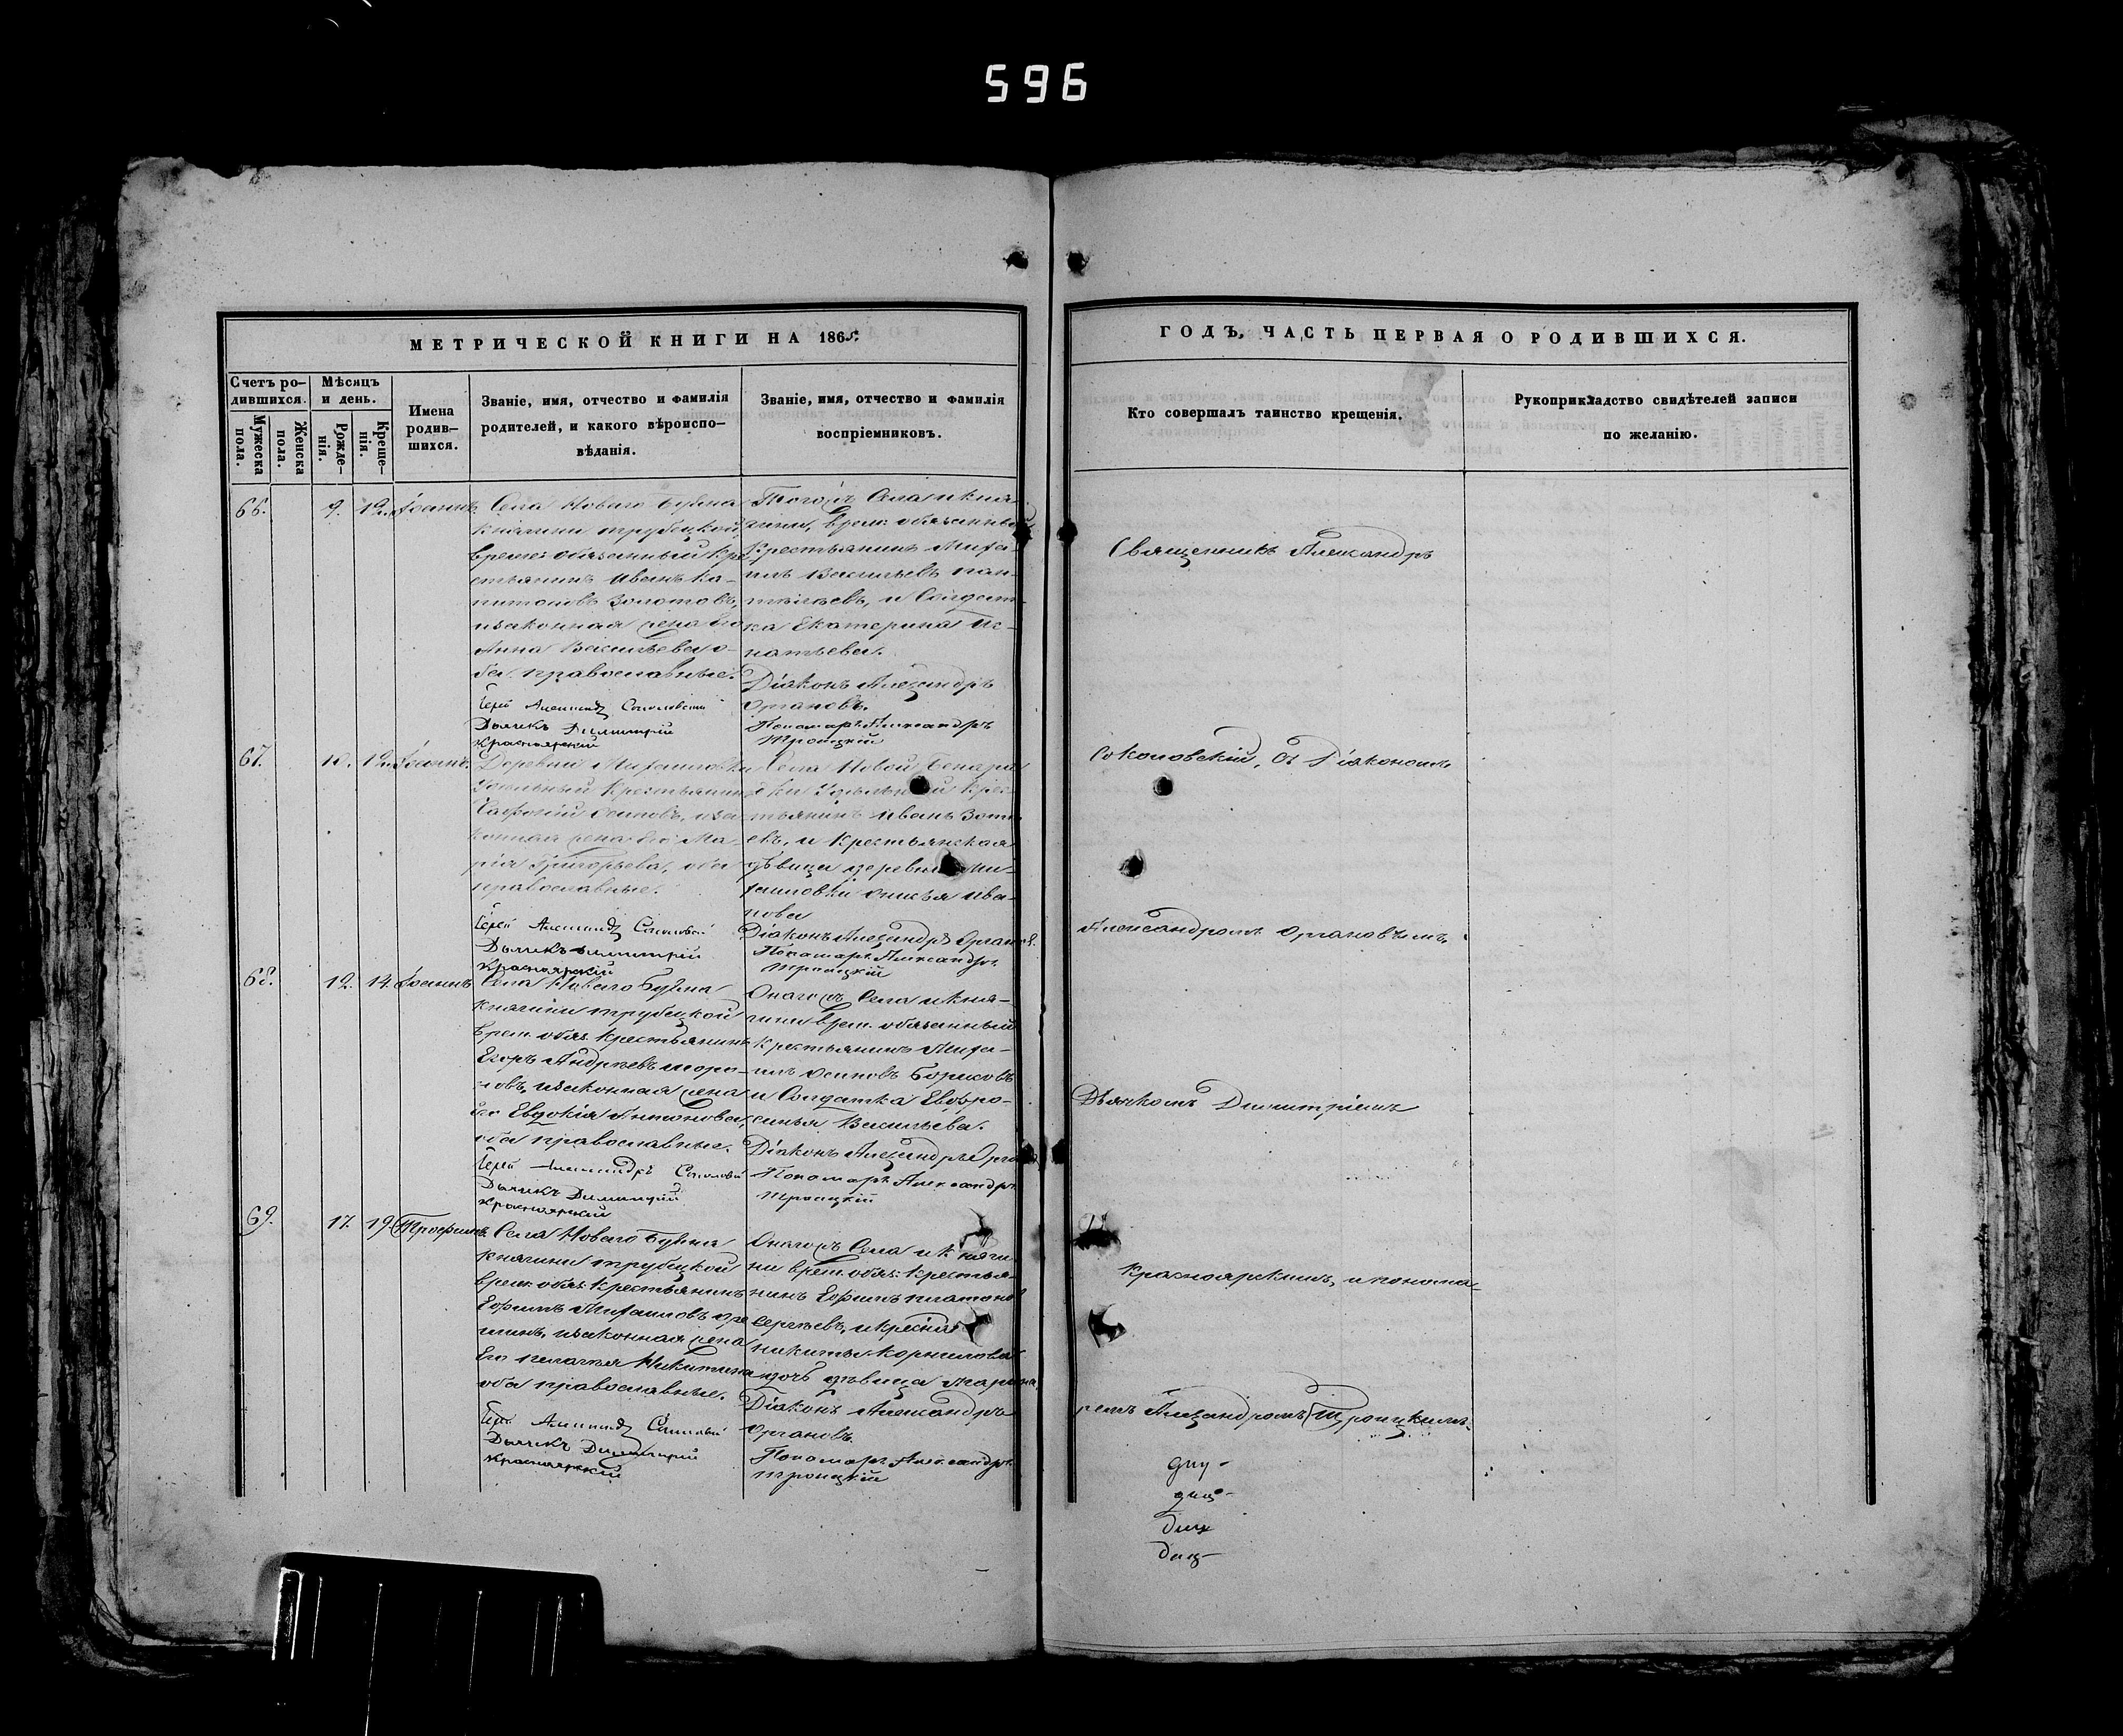 596
МЕТРИЧЕСКОЙ КНИГИ НА 1865
ГОДЪ, ЧАСТЬ ПЕРВАЯ О РОДИВШИХСЯ.
Счетъ ро-
дившихся.
Мужеска
пола.
Женска
пола.
Мѣсяцъ
и день.
Рожде-
нія.
Креще-
нія.
Имена
родив-
шихся.
Званіе, имя, отчество и фамилія
родителей, и какого вѣроиспо-
вѣданія.
Званіе, имя, отчество и фамилія
воспріемниковъ.
Кто совершалъ таинство крещенія.
Рукоприкладство свидѣтелей записи
по желанію.
66. 9. 12. Іоаннъ.
Села Новаго
Княгини Трубецкой
времен: обязанный кре
стьянинъ Иванъ Ка-
питоновъ Золотовъ,
и законная жена его
Анна Васильева о-
ба православные.
Іерей Александръ Соколовскій
Дьячекъ Димитрій
Красноярскій
Тогожъ Села и Кня-
гини, врем: обязанный
Крестьянинъ Миха-
илъ Васильевъ Пан-
, и Солдат-
ка Екатерина Иг-
натьева.
Діаконъ Александръ
Органовъ.
Пономарь Александръ
Троицкій
67. 10. 12. Іоаннъ.
Деревни Михайловки
Удѣльный Крестьянинъ
Осиповъ, и за
конная жена его Ма-
рія Григорьева, оба
православные.
Іерей Александръ Соколовскій
Дьячекъ Димитрій
Красноярскій
Села Новой
ки Удѣльный Крес-
тьянинъ Иванъ
евъ, и Крестьянская
дѣвица деревни Ми-
хайловки Анисья Ива-
нова
Діаконъ Александръ Органов.
Пономарь Александръ
Троицкій
68. 12. 14. Іоаннъ
Села Новаго
Княгини Трубецкой
врем. обяз. крестьянинъ
Егоръ Андреевъ
и законная жена
его Евдокія Антонова,
оба православные.
Іерей Александръ Соколовскій
Дьячекъ Димитрій
Красноярскій
Онагожъ Села и Кня-
гини врем. обязанный
Крестьянинъ Миха-
илъ Осиповъ Борисовъ
и Солдатка Евфро-
синья Васильева.
Діаконъ Александръ Орга
Пономарь Александръ
Троицкій
69. 17. 19. Трофимъ.
Села Новаго
Княгини Трубецкой
врем: обяз: Крестьянинъ
Ефимъ Михаиловъ
и законная жена
Его Пелагея Никитина
оба православные.
Іерей Александръ Соколовскій
Дьячекъ Димитрій
Красноярскій
Онагожъ Села и Княги
ни врем. обяз: Крестья-
нинъ Ефимъ Платонов
Сергѣевъ, и
Никиты Корнилова
дочь дѣвица Марина
Діаконъ Александръ
Органовъ.
Пономарь Александръ
Троицкій
Священникъ Александръ
Соколовскій, съ Діакономъ
Александромъ Органовымъ,
Дьячкомъ Димитріемъ
Красноярскимъ, и понома-
ремъ Александромъ Троицкимъ.